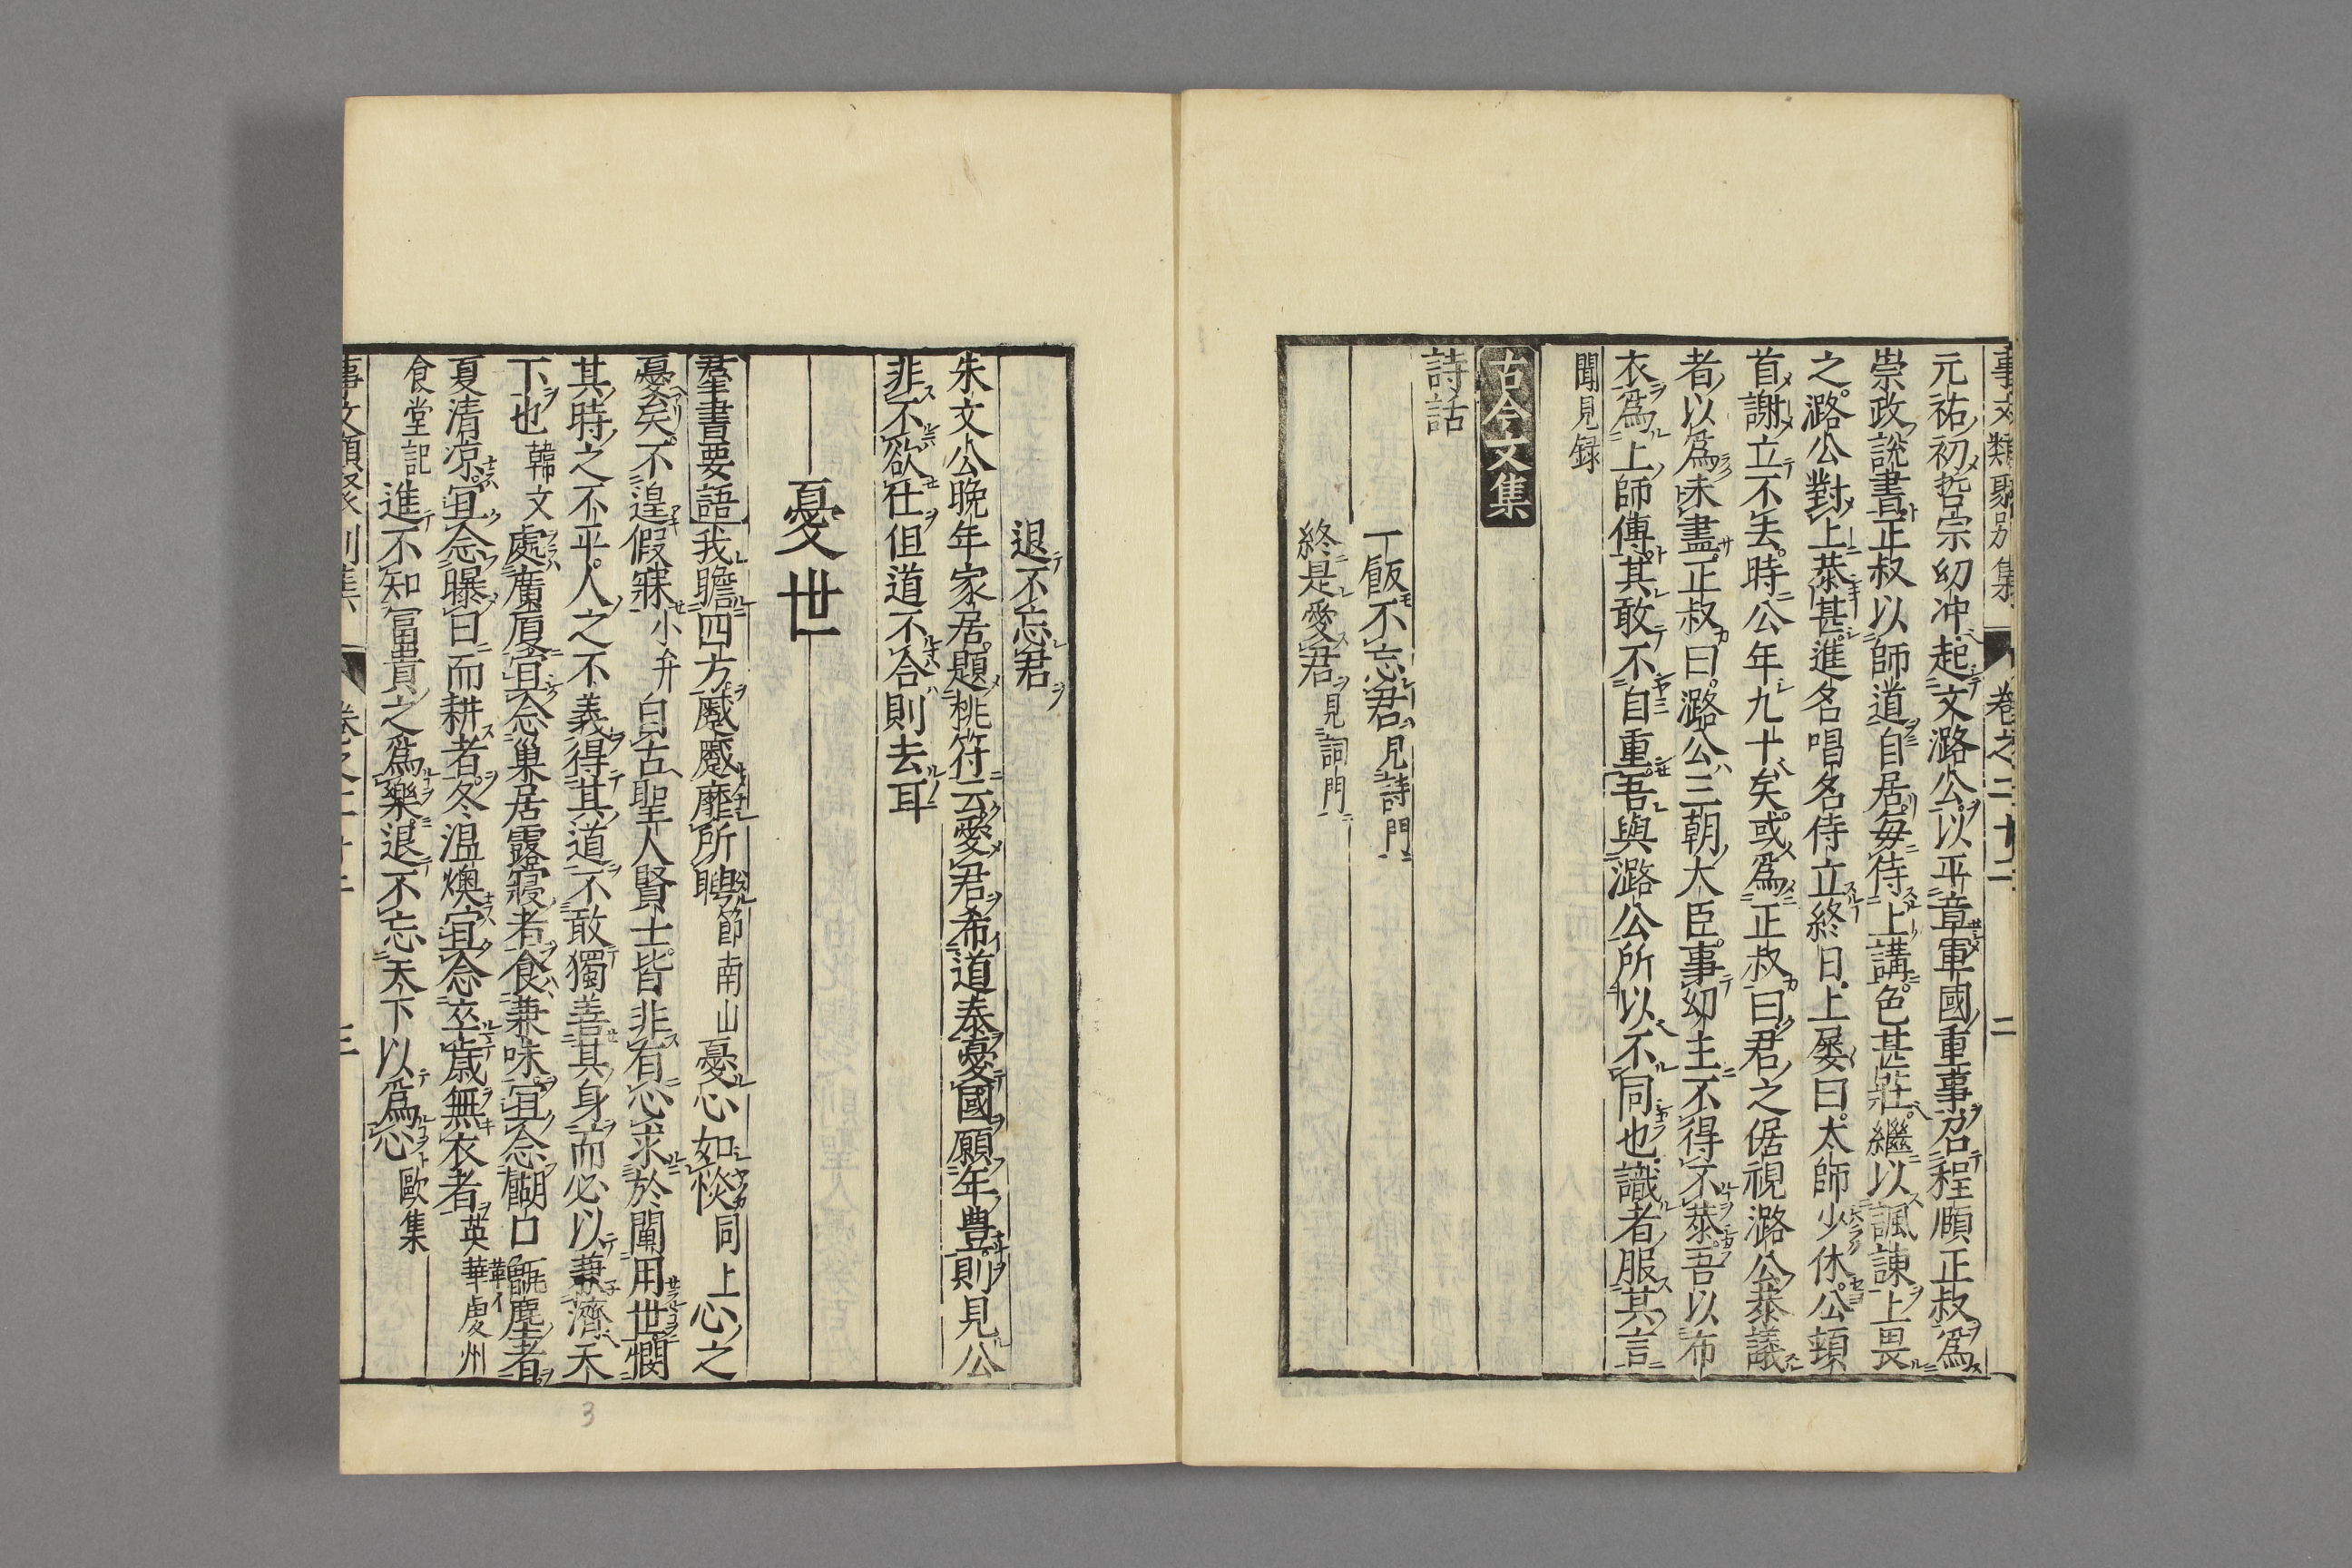 事文類聚別集 卷之二十二 二
元祐初哲宗幼冲起文潞公以平章軍國重事召程頤正叔爲
崇政說書正叔以師道自居每侍上講色甚莊繼以諷諫上畏
之潞公對上恭甚進名唱名侍立終日上屡曰太師少休公頓
首謝立不去時公年九十矣或爲正叔曰君之倨視潞公㳟議
者以爲未盡正叔曰潞公三朝大臣事幼主不得不恭吾以布
衣爲上師傅其敢不自重吾與潞公所以不同也識者服其言
聞見録
古今文集
詩話
一飯不忘君見詩門
終是愛君見詞門
退不忘君
朱文公晚年家居題桃符云愛君希道泰憂國願年豊則見公
非不欲仕但道不合則去耳
憂世
羣書要語我瞻四方蹙蹙靡所騁節南山憂心如惔同上心之
憂矣不遑假寐小弁自古聖人賢士皆非有心求於聞用世憫
其時之不平人之不義得其道不敢獨善其身而必以兼濟天
下也韓文處廣厦宜念巢居露寢者食兼味宜念餬口甑塵者
夏清涼宜念曝日而耕者冬温燠宜念卒歲無衣者英華虔州
食堂記進不知冨貴之爲樂退不忘天下以爲心歐集